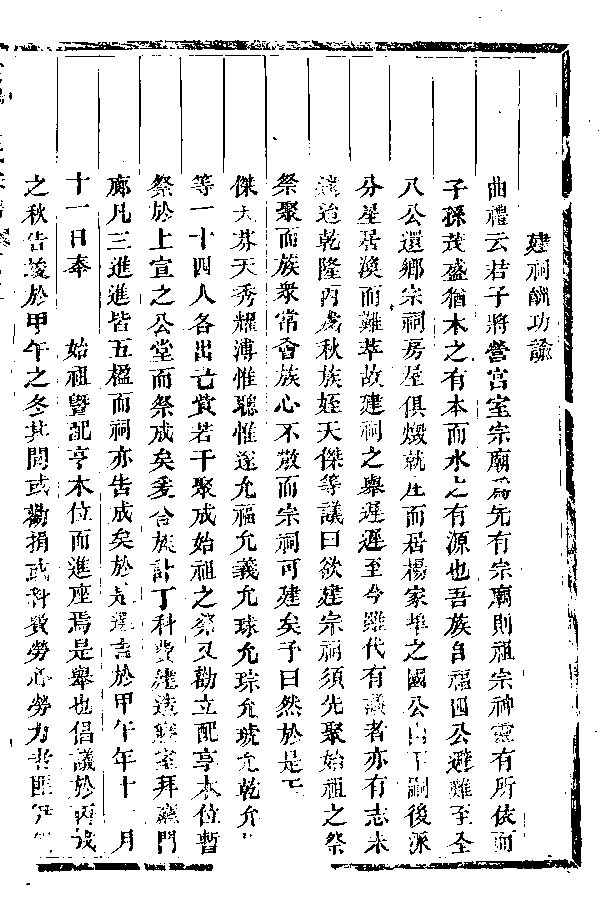 建祠酬功論
曲禮云君子將營宮室宗廟爲先有宗廟則祖宗神靈有所依而
子孫茂盛猶木之有本而水之有源也吾族自福四公避難至全
八公還鄉宗祠房屋俱燬就庄而居楊家埠之國公山下嗣後派
分星居渙而難萃故建祠之舉遲遲至今雖代有議者亦有志未
逮迨乾隆丙戌秋族姪天傑等議曰欲建宗祠須先聚始祖之祭
祭聚而族衆常會族心不散而宗祠可建矣予曰然於是天
傑大芬天秀耀溥惟聰惟遂允福允義允球允琮允琥允乾允
等一十四人各出己貲若干聚成始祖之祭又勸立配享木位暫
祭於上宣之公堂而祭成矣爰合族計丁科費建造寢室拜廳門
廊凡三進進皆五楹而祠亦告成矣於是選吉於甲午年十 月
十一日奉 始祖暨配亨木位而進座焉是舉也倡議於丙戌
之秋告竣於甲午之冬其間或勸捐或科斂勞心勞力者匪